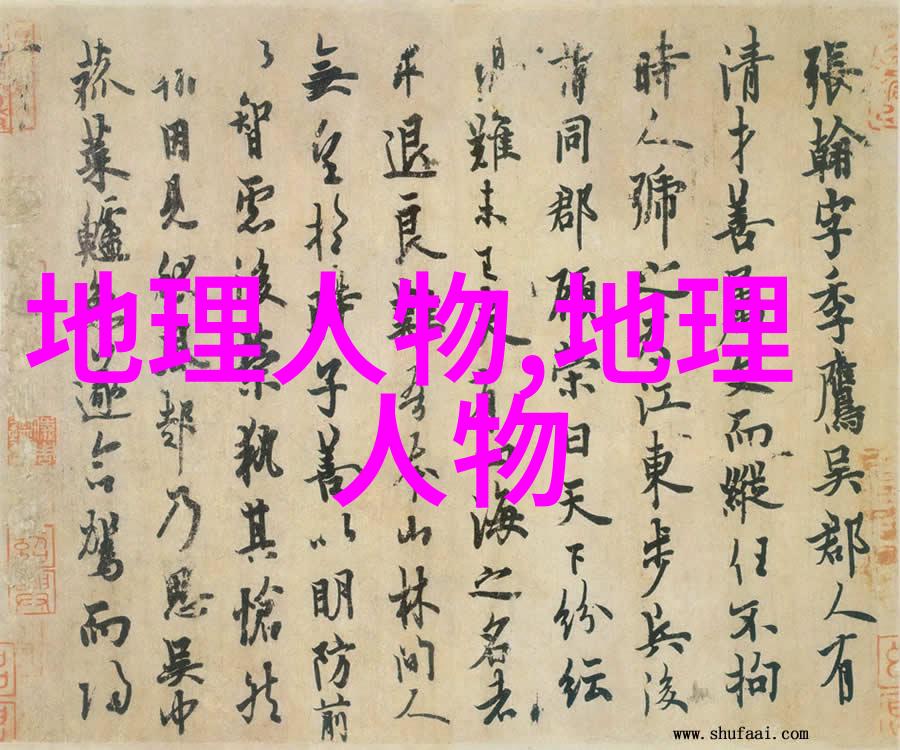 張翰字季鷹吳郡人有
清才善屬文而縱任不拘
時人號之為江東步兵後
謂同郡顧榮曰天下紛紜
難未已夫有四海之名者
求退良難吾本山林間人
無望於時子善以明防前
以智慮後榮執其愴然
翰因見秋風起乃思吳中
菰菜鱸魚遂命駕而歸
地理人物,地理
人物
www.shufaai.com